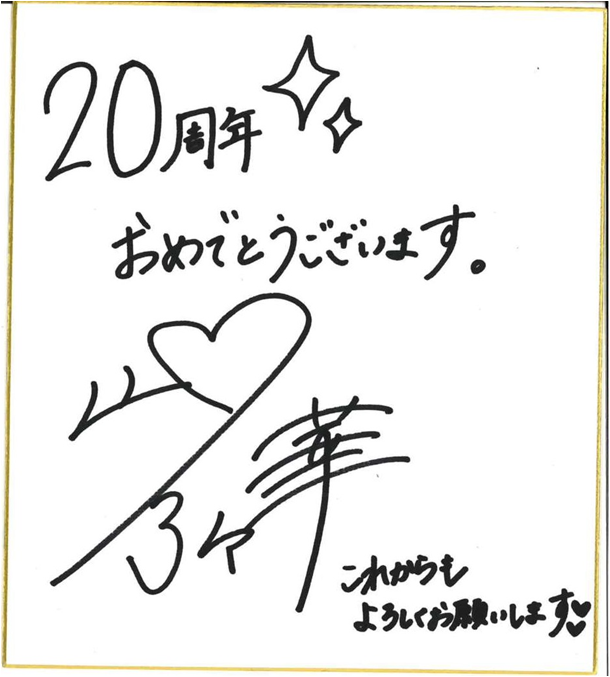 20周年
おめでとうございます。
山
華
これからも
よろしくお願いします